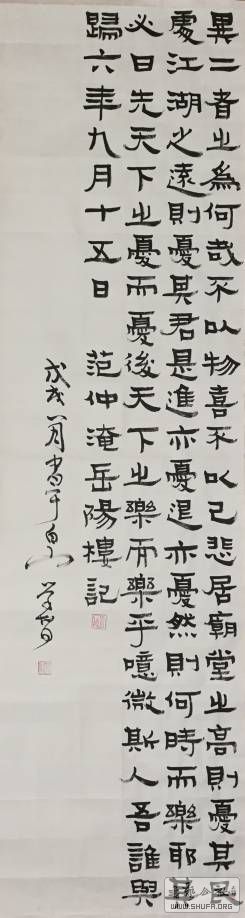 異二者之為何哉不以物喜不以己悲居廟堂之高則憂其民
處江湖之遠則憂其君是進亦憂退亦憂然則何時而樂耶其
必曰先天下之憂而憂後天下之樂而樂乎噫微斯人吾誰與
歸六年九月十五日 范仲淹岳陽樓記
戊戌八月書于
WWW.SHUFA.ORG